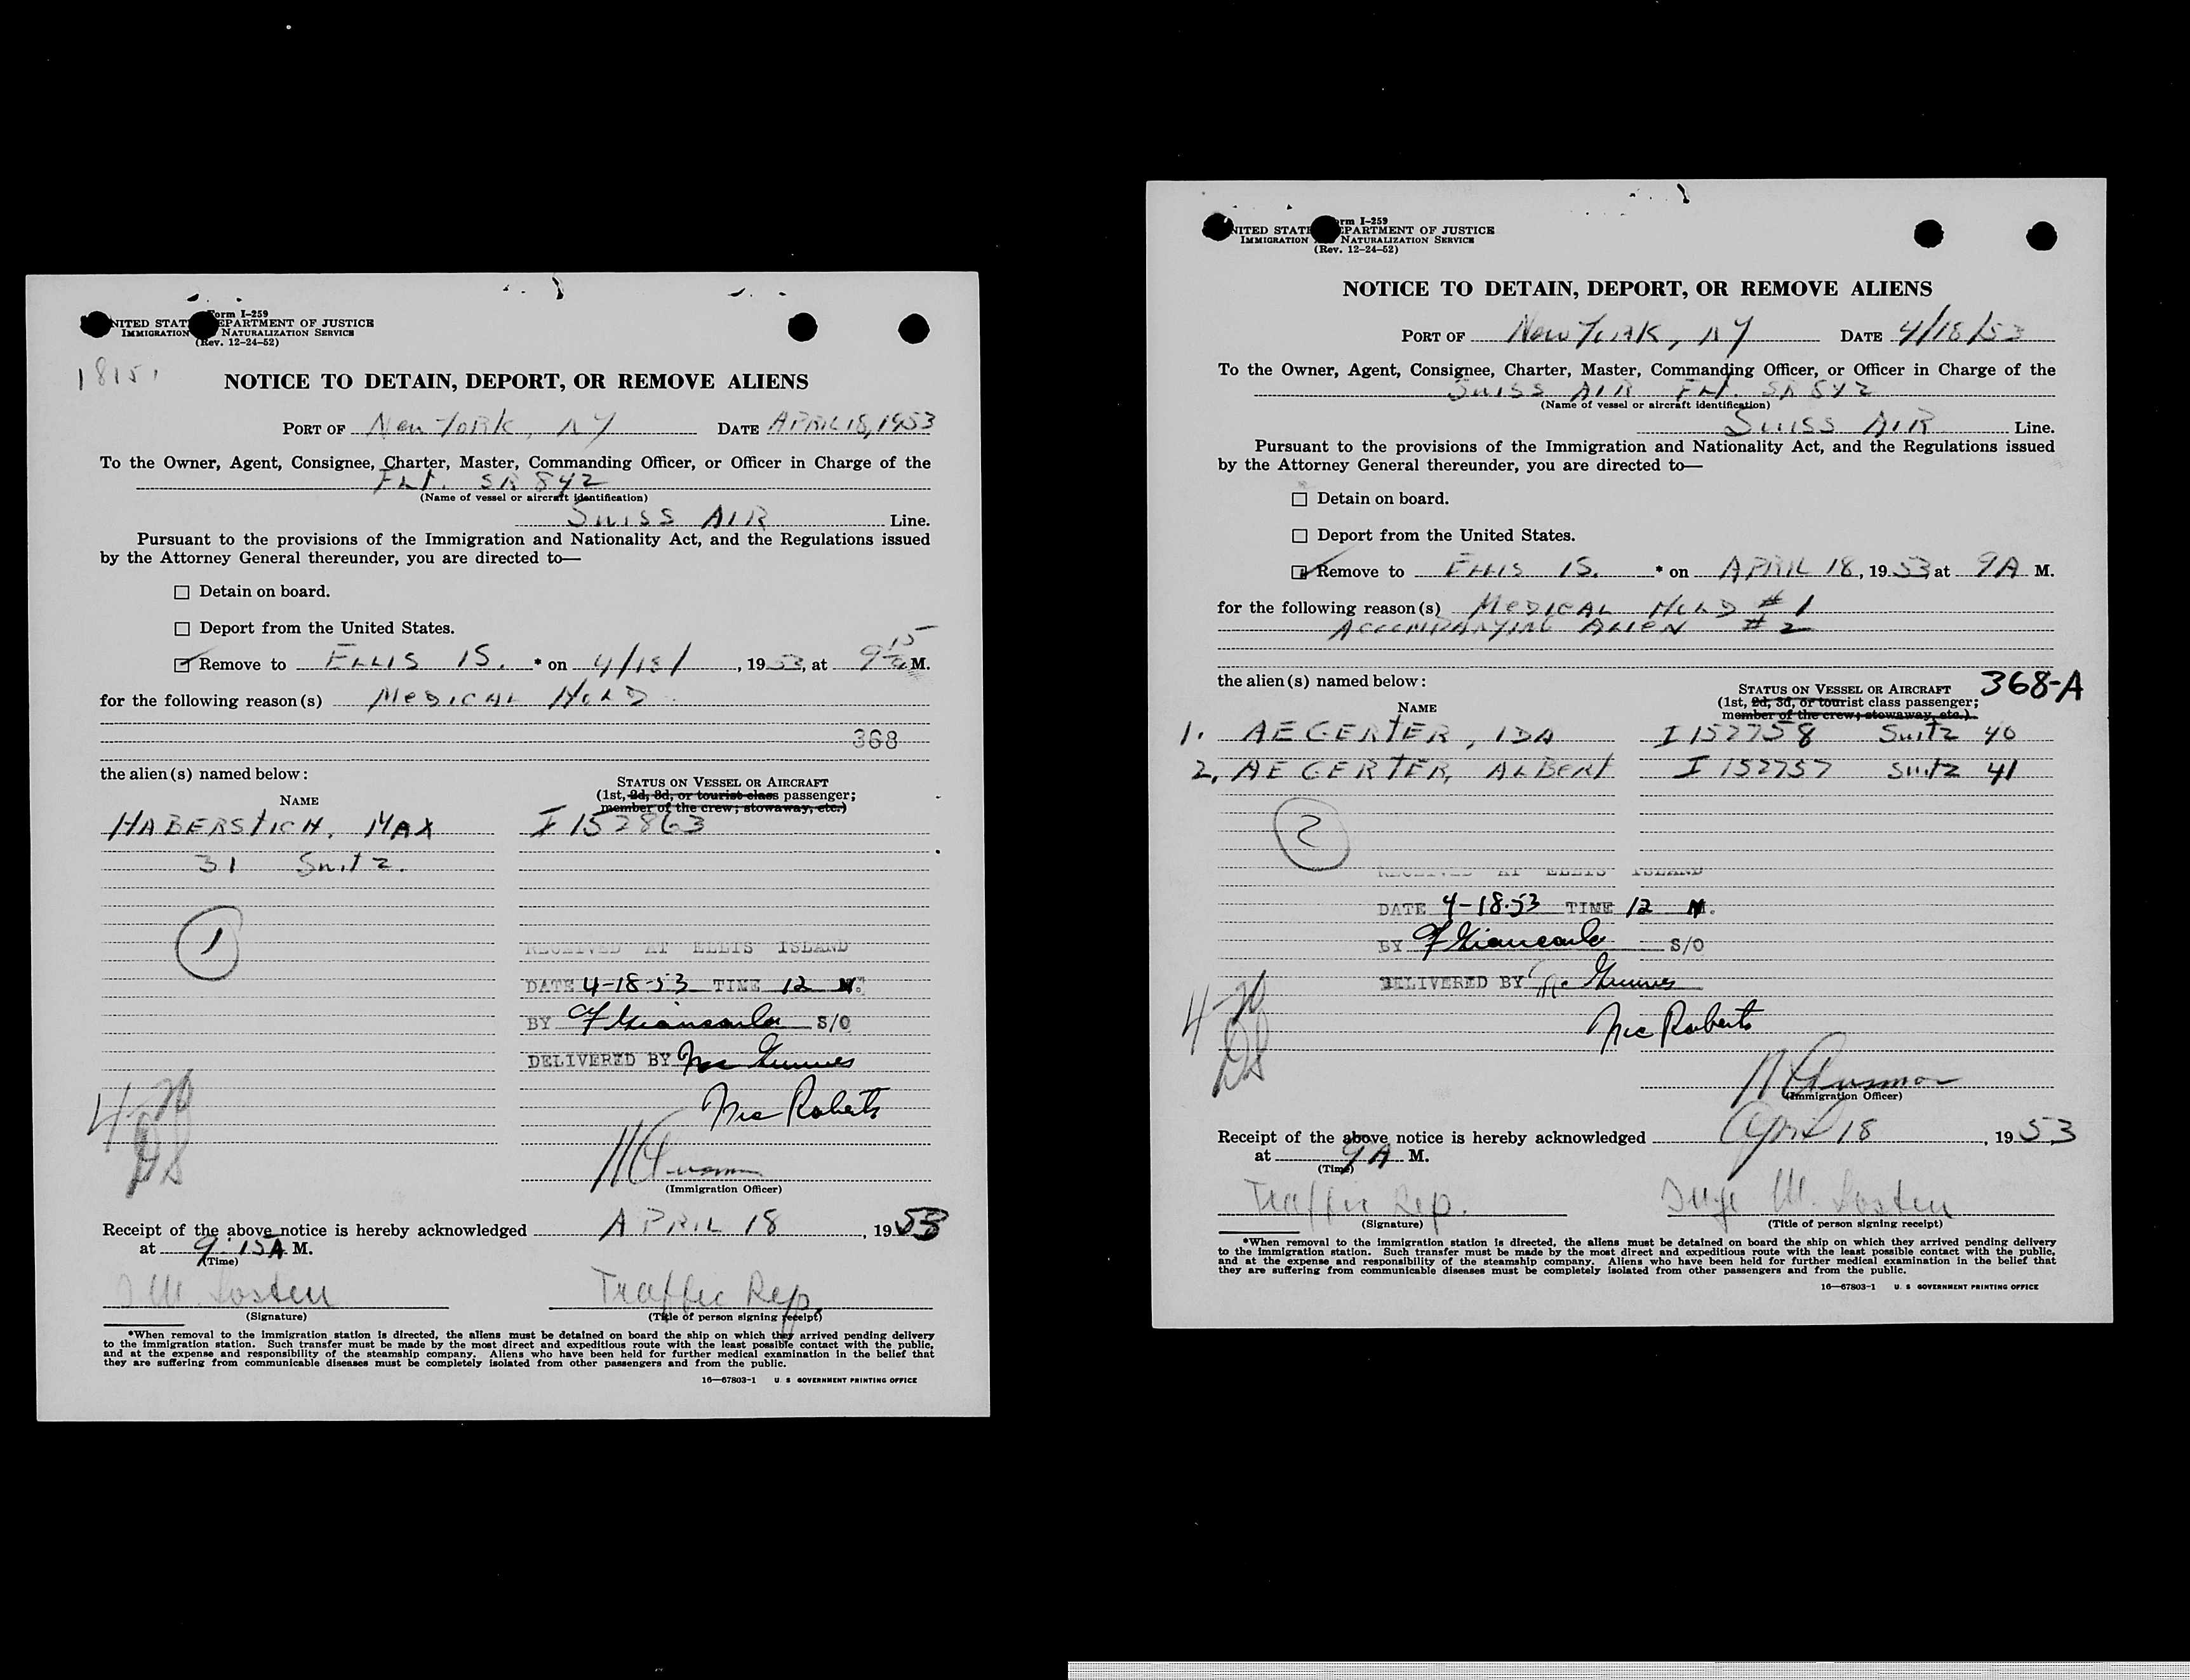 Form I-259
UNITED STATES DEPARTMENT OF JUSTICE
IMMIGRATION NATURALIZATION SERVICE
(Rev. 12-24-52)
18151
NOTICE TO DETAIN, DEPORT, OR REMOVE ALIENS
PORT OF New York, NY DATE APRIL 18, 1953
To the Owner, Agent, Consignee, Charter, Master, Commanding Officer, or Officer in Charge of the
FLT. SR 842
(Name of vessel or aircraft identification)
SWISS AIR Line.
Pursuant to the provisions of the Immigration and Nationality Act, and the Regulations issued
by the Attorney General thereunder, you are directed to—
☐ Detain on board.
☐ Deport from the United States.
☑ Remove to ELLIS IS. * on 4/18/, 1953, at 9 15 A M.
for the following reason(s) MEDICAL HOLD
368
the alien(s) named below:
STATUS ON VESSEL OR AIRCRAFT
NAME
(1st, 2d, 3d, or tourist class passenger;
member of the crew; stowaway, etc.)
HABERSTICH, MAX I 152863
31 Switz.
1
RECEIVED AT ELLIS ISLAND
DATE 4-18-53 TIME 12 M.
BY S/O
DELIVERED BY
Mc Roberts
4-20
DS
(Immigration Officer)
Receipt of the above notice is hereby acknowledged APRIL 18, 1953
at 9:15 A M.
(Time)
Traffic Rep.
(Signature) (Title of person signing receipt)
*When removal to the immigration station is directed, the aliens must be detained on board the ship on which they arrived pending delivery
to the immigration station. Such transfer must be made by the most direct and expeditious route with the least possible contact with the public,
and at the expense and responsibility of the steamship company. Aliens who have been held for further medical examination in the belief that
they are suffering from communicable diseases must be completely isolated from other passengers and from the public.
16—67803-1 U. S GOVERNMENT PRINTING OFFICE
Form I-259
UNITED STATES DEPARTMENT OF JUSTICE
IMMIGRATION NATURALIZATION SERVICE
(Rev. 12-24-52)
NOTICE TO DETAIN, DEPORT, OR REMOVE ALIENS
PORT OF New York, NY DATE 4/18/53
To the Owner, Agent, Consignee, Charter, Master, Commanding Officer, or Officer in Charge of the
SWISS AIR FLT. SR 842
(Name of vessel or aircraft identification)
SWISS AIR Line.
Pursuant to the provisions of the Immigration and Nationality Act, and the Regulations issued
by the Attorney General thereunder, you are directed to—
☐ Detain on board.
☐ Deport from the United States.
☑ Remove to ELLIS IS. * on APRIL 18, 1953 at 9A M.
for the following reason(s) MEDICAL HOLD #1
ACCOMPANYING ALIEN #2
the alien(s) named below:
368-A
STATUS ON VESSEL OR AIRCRAFT
NAME
(1st, 2d, 3d, or tourist class passenger;
member of the crew; stowaway, etc.)
1. AEGERTER, IDA I 152758 Switz 40
2. AEGERTER, ALBERT I 152757 Switz 41
2
RECEIVED AT ELLIS ISLAND
DATE 4-18-53 TIME 12 M.
BY S/O
DELIVERED BY
Mc Roberts
4-20
DS
(Immigration Officer)
Receipt of the above notice is hereby acknowledged April 18, 1953
at 9 A M.
(Time)
Traffic Rep.
(Signature) (Title of person signing receipt)
*When removal to the immigration station is directed, the aliens must be detained on board the ship on which they arrived pending delivery
to the immigration station. Such transfer must be made by the most direct and expeditious route with the least possible contact with the public,
and at the expense and responsibility of the steamship company. Aliens who have been held for further medical examination in the belief that
they are suffering from communicable diseases must be completely isolated from other passengers and from the public.
16—67803-1 U. S GOVERNMENT PRINTING OFFICE